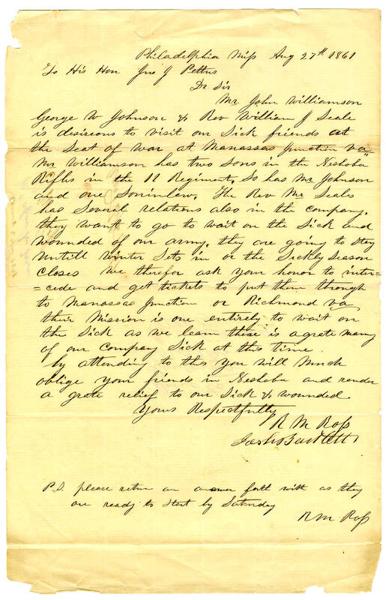 Philadelphia Miss Aug 27th 1861
To His Hon Jno J Pettus
Dr Sir
Mr John Williamson
George W Johnson & Rev William J Seale
is desireous to visit our Sick friends at
the Seat of war at Manassas Junction va
Mr Williamson has two Sons in the Neshoba
Rifles in the 11 Regiment, So has Mr Johnson
and one Soninlaw, The Rev Mr Seales
has Sevril relations also in the company,
they want to go to wait on the Sick and
wounded of our army, they are going to Stay
untill winter Sets in or the Sickly Season
closes we therfor ask your honor to inter=
=cede and get tickets to put them through
to Manassas Junction or Richmond va
their Mission is one entirely to wait on
the Sick as we learn there is a grate many
of our Company Sick at this time.
by attending to this you will Much
oblige your friends in Neshoba and render
a grate relief to our Sick & wounded
Yours Respectfully
R M Ross
Bartlett
P.S. please return an answer forth with as they
are ready to Start by Saturday
R M Ross